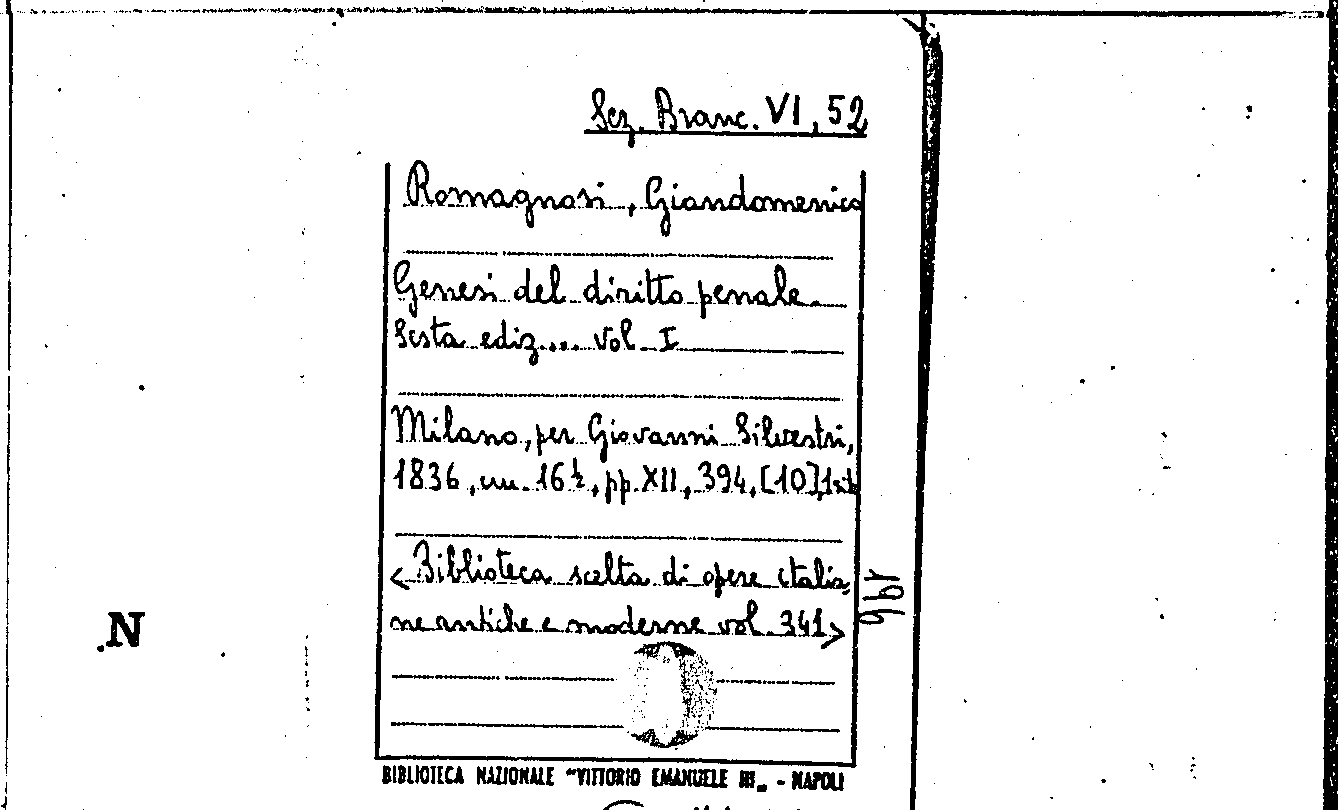 Sez. Branc. VI, 52
Romagnosi, Giandomenico
Genesi del diritto penale.
Sesta ediz.... Vol. I
Milano, per Giovanni Silvestri,
1836, cm. 16½, pp. XII, 394, [10],
<Biblioteca scelta di opere italia-
ne antiche e moderne vol. 341>
N
BIBLIOTECA NAZIONALE "VITTORIO EMANUELE III„ - NAPOLI